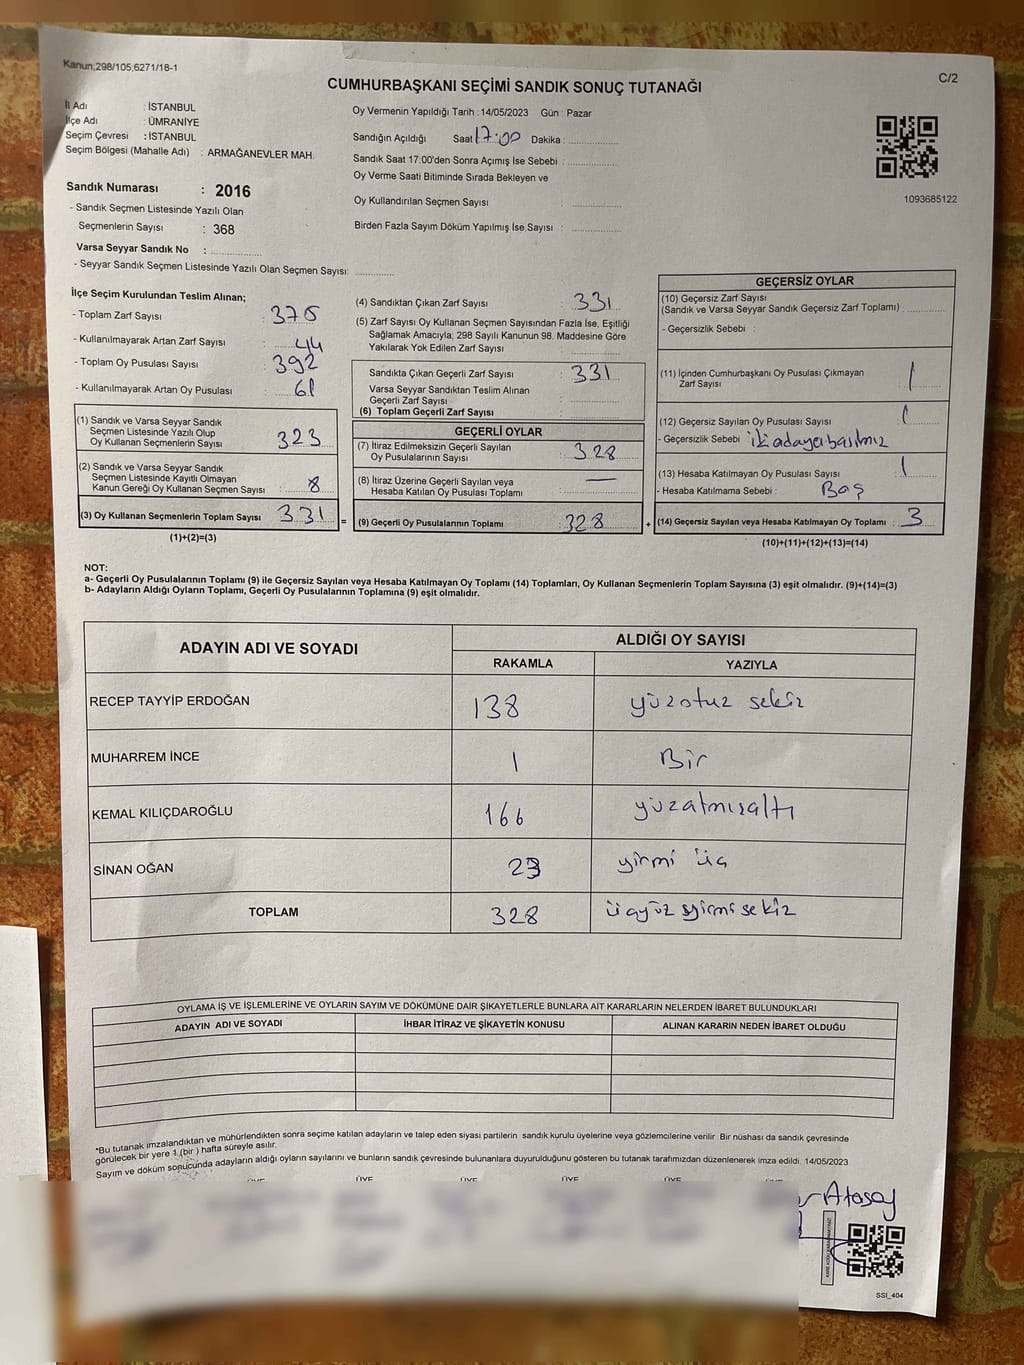 Kanun:298/105;6271/18-1
C/2
CUMHURBAŞKANI SEÇİMİ SANDIK SONUÇ TUTANAĞI
İl Adı : İSTANBUL
İlçe Adı : ÜMRANİYE
Seçim Çevresi : İSTANBUL
Seçim Bölgesi (Mahalle Adı) : ARMAĞANEVLER MAH.
Sandık Numarası : 2016
- Sandık Seçmen Listesinde Yazılı Olan
Seçmenlerin Sayısı : 368
Varsa Seyyar Sandık No :
- Seyyar Sandık Seçmen Listesinde Yazılı Olan Seçmen Sayısı:
Oy Vermenin Yapıldığı Tarih : 14/05/2023 Gün : Pazar
Sandığın Açıldığı Saat 17:00 Dakika :
Sandık Saat 17:00'den Sonra Açımış İse Sebebi :
Oy Verme Saati Bitiminde Sırada Bekleyen ve
Oy Kullandırılan Seçmen Sayısı :
Birden Fazla Sayım Döküm Yapılmış İse Sayısı :
1093685122
İlçe Seçim Kurulundan Teslim Alınan;
- Toplam Zarf Sayısı : 375
- Kullanılmayarak Artan Zarf Sayısı : 44
- Toplam Oy Pusulası Sayısı : 392
- Kullanılmayarak Artan Oy Pusulası : 61
(1) Sandık ve Varsa Seyyar Sandık
Seçmen Listesinde Yazılı Olup
Oy Kullanan Seçmenlerin Sayısı : 323
(2) Sandık ve Varsa Seyyar Sandık
Seçmen Listesinde Kayıtlı Olmayan
Kanun Gereği Oy Kullanan Seçmen Sayısı : 8
(3) Oy Kullanan Seçmenlerin Toplam Sayısı : 331 =
(1)+(2)=(3)
(4) Sandıktan Çıkan Zarf Sayısı : 331
(5) Zarf Sayısı Oy Kullanan Seçmen Sayısından Fazla İse, Eşitliği
Sağlamak Amacıyla; 298 Sayılı Kanunun 98. Maddesine Göre
Yakılarak Yok Edilen Zarf Sayısı :
Sandıkta Çıkan Geçerli Zarf Sayısı : 331
Varsa Seyyar Sandıktan Teslim Alınan
Geçerli Zarf Sayısı :
(6) Toplam Geçerli Zarf Sayısı :
GEÇERLİ OYLAR
(7) İtiraz Edilmeksizin Geçerli Sayılan
Oy Pusulalarının Sayısı : 328
(8) İtiraz Üzerine Geçerli Sayılan veya
Hesaba Katılan Oy Pusulası Toplamı : —
(9) Geçerli Oy Pusulalarının Toplamı : 328 +
GEÇERSİZ OYLAR
(10) Geçersiz Zarf Sayısı
(Sandık ve Varsa Seyyar Sandık Geçersiz Zarf Toplamı) :
- Geçersizlik Sebebi :
(11) İçinden Cumhurbaşkanı Oy Pusulası Çıkmayan
Zarf Sayısı : 1
(12) Geçersiz Sayılan Oy Pusulası Sayısı : 1
- Geçersizlik Sebebi : iki adaya basılmız
(13) Hesaba Katılmayan Oy Pusulası Sayısı : 1
- Hesaba Katılmama Sebebi : Boş
(14) Geçersiz Sayılan veya Hesaba Katılmayan Oy Toplamı : 3
(10)+(11)+(12)+(13)=(14)
NOT:
a- Geçerli Oy Pusulalarının Toplamı (9) ile Geçersiz Sayılan veya Hesaba Katılmayan Oy Toplamı (14) Toplamları, Oy Kullanan Seçmenlerin Toplam Sayısına (3) eşit olmalıdır. (9)+(14)=(3)
b- Adayların Aldığı Oyların Toplamı, Geçerli Oy Pusulalarının Toplamına (9) eşit olmalıdır.
ADAYIN ADI VE SOYADI
ALDIĞI OY SAYISI
RAKAMLA YAZIYLA
RECEP TAYYİP ERDOĞAN 138 yüzotuz sekiz
MUHARREM İNCE 1 Bir
KEMAL KILIÇDAROĞLU 166 yüzatmışaltı
SİNAN OĞAN 23 yirmi üç
TOPLAM 328 üçyüz yirmi sekiz
OYLAMA İŞ VE İŞLEMLERİNE VE OYLARIN SAYIM VE DÖKÜMÜNE DAİR ŞİKAYETLERLE BUNLARA AİT KARARLARIN NELERDEN İBARET BULUNDUKLARI
ADAYIN ADI VE SOYADI İHBAR İTİRAZ VE ŞİKAYETİN KONUSU ALINAN KARARIN NEDEN İBARET OLDUĞU
*Bu tutanak imzalandıktan ve mühürlendikten sonra seçime katılan adayların ve talep eden siyasi partilerin sandık kurulu üyelerine veya gözlemcilerine verilir. Bir nüshası da sandık çevresinde
görülecek bir yere 1 (bir) hafta süreyle asılır.
Sayım ve döküm sonucunda adayların aldığı oyların sayılarını ve bunların sandık çevresinde bulunanlara duyurulduğunu gösteren bu tutanak tarafımızdan düzenlenerek imza edildi. 14/05/2023
ÜYE ÜYE ÜYE ÜYE
Atasay
SSI_404